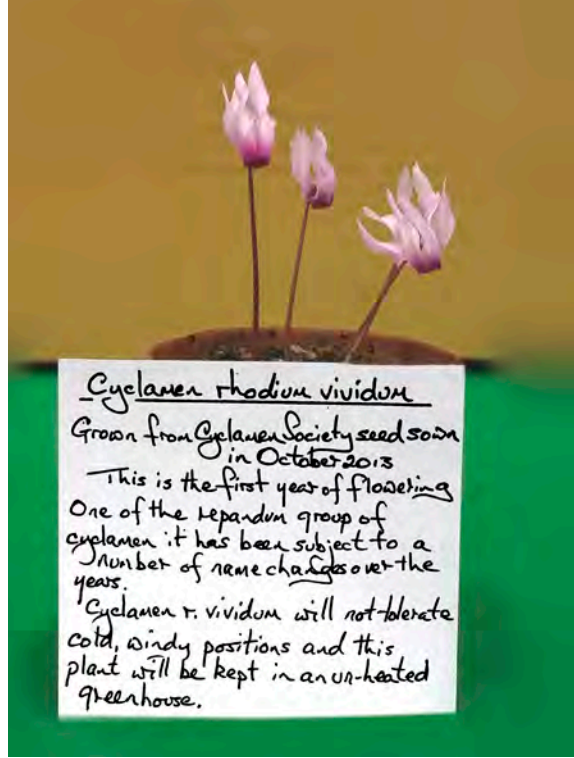 Cyclamen rhodium vividum
Grown from Cyclamen Society seed sown
in October 2013
This is the first year of flowering
One of the repandum group of
cyclamen it has been subject to a
number of name changes over the
years.
Cyclamen r. vividum will not tolerate
cold, windy positions and this
plant will be kept in an un-heated
greenhouse.